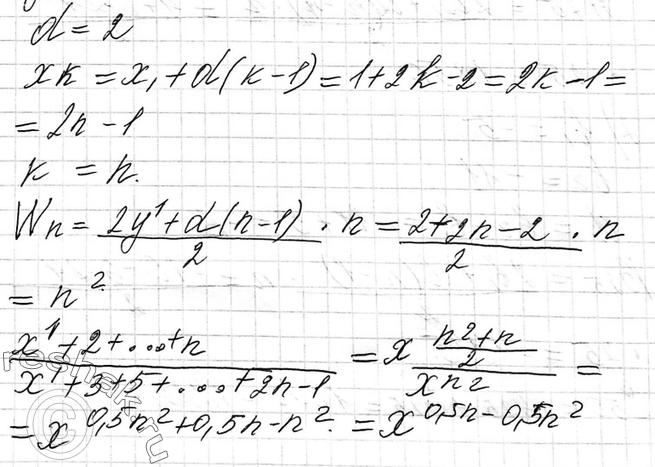 d = 2
xk = x₁ + d(k-1) = 1+2k-2 = 2k-1 =
= 2n-1
k = n.
Wn = (2y¹ + d(n-1))/2 · n = (2+2n-2)/2 · n
= n²
x^(1+2+...+n) / x^(1+3+5+...+2n-1) = x^((n²+n)/2) / x^(n²) =
= x^(0,5n²+0,5n-n²) = x^(0,5n-0,5n²)
reshak.ru